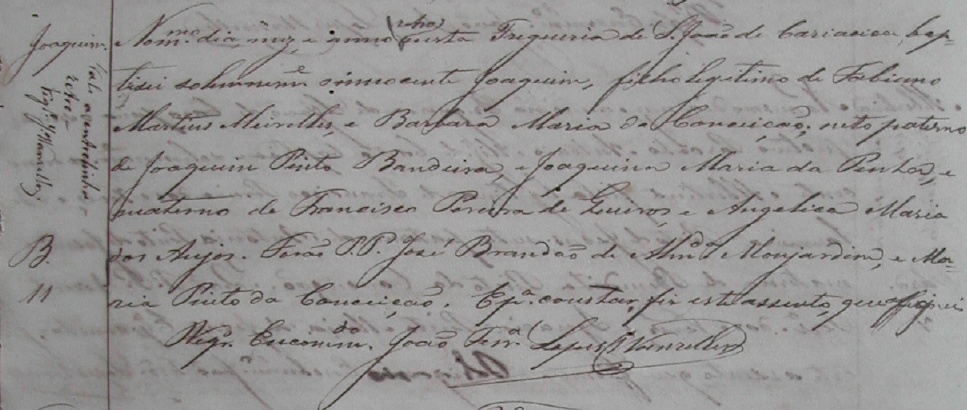 Joaquim. No mmo. dia, mez, e anno nesta Freguezia de S. João de Cariacica, bap-
echo
tisei solemnem.e o innocente Joaquim, filho legitimo de Fabiano
Martins Meirelles, e Barbara Maria da Conceição; neto paterno
de Joaquim Pinto Bandeira, e Joaquina Maria da Penha, e
materno de Francisco Pereira de Queiros, e Angelica Maria
dos Anjos. Forão P.P. José Brandão de Almda. Monjardim, e Ma-
ria Pinto da Conceição. E pa. constar, fiz este assento, que assignei
O Vigr.o Encomm.do João Ferra. Lopes Wanzeller
Val. a entrelinha
echo
Vigr.o Wanzeller
B.
11